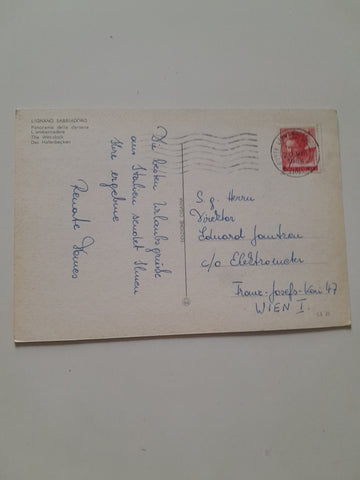 LIGNANO SABBIADORO
Panorama della darsena
L'embarcadère
The Wet-dock
Das Hafenbecken
Die besten Urlaubsgrüße
aus Italien sendet Ihnen
Ihre ergebene
Renate
S.g. Herrn
Direktor
Eduard
c/o Elektrometer
Franz-Josefs-Kai 47
WIEN I.